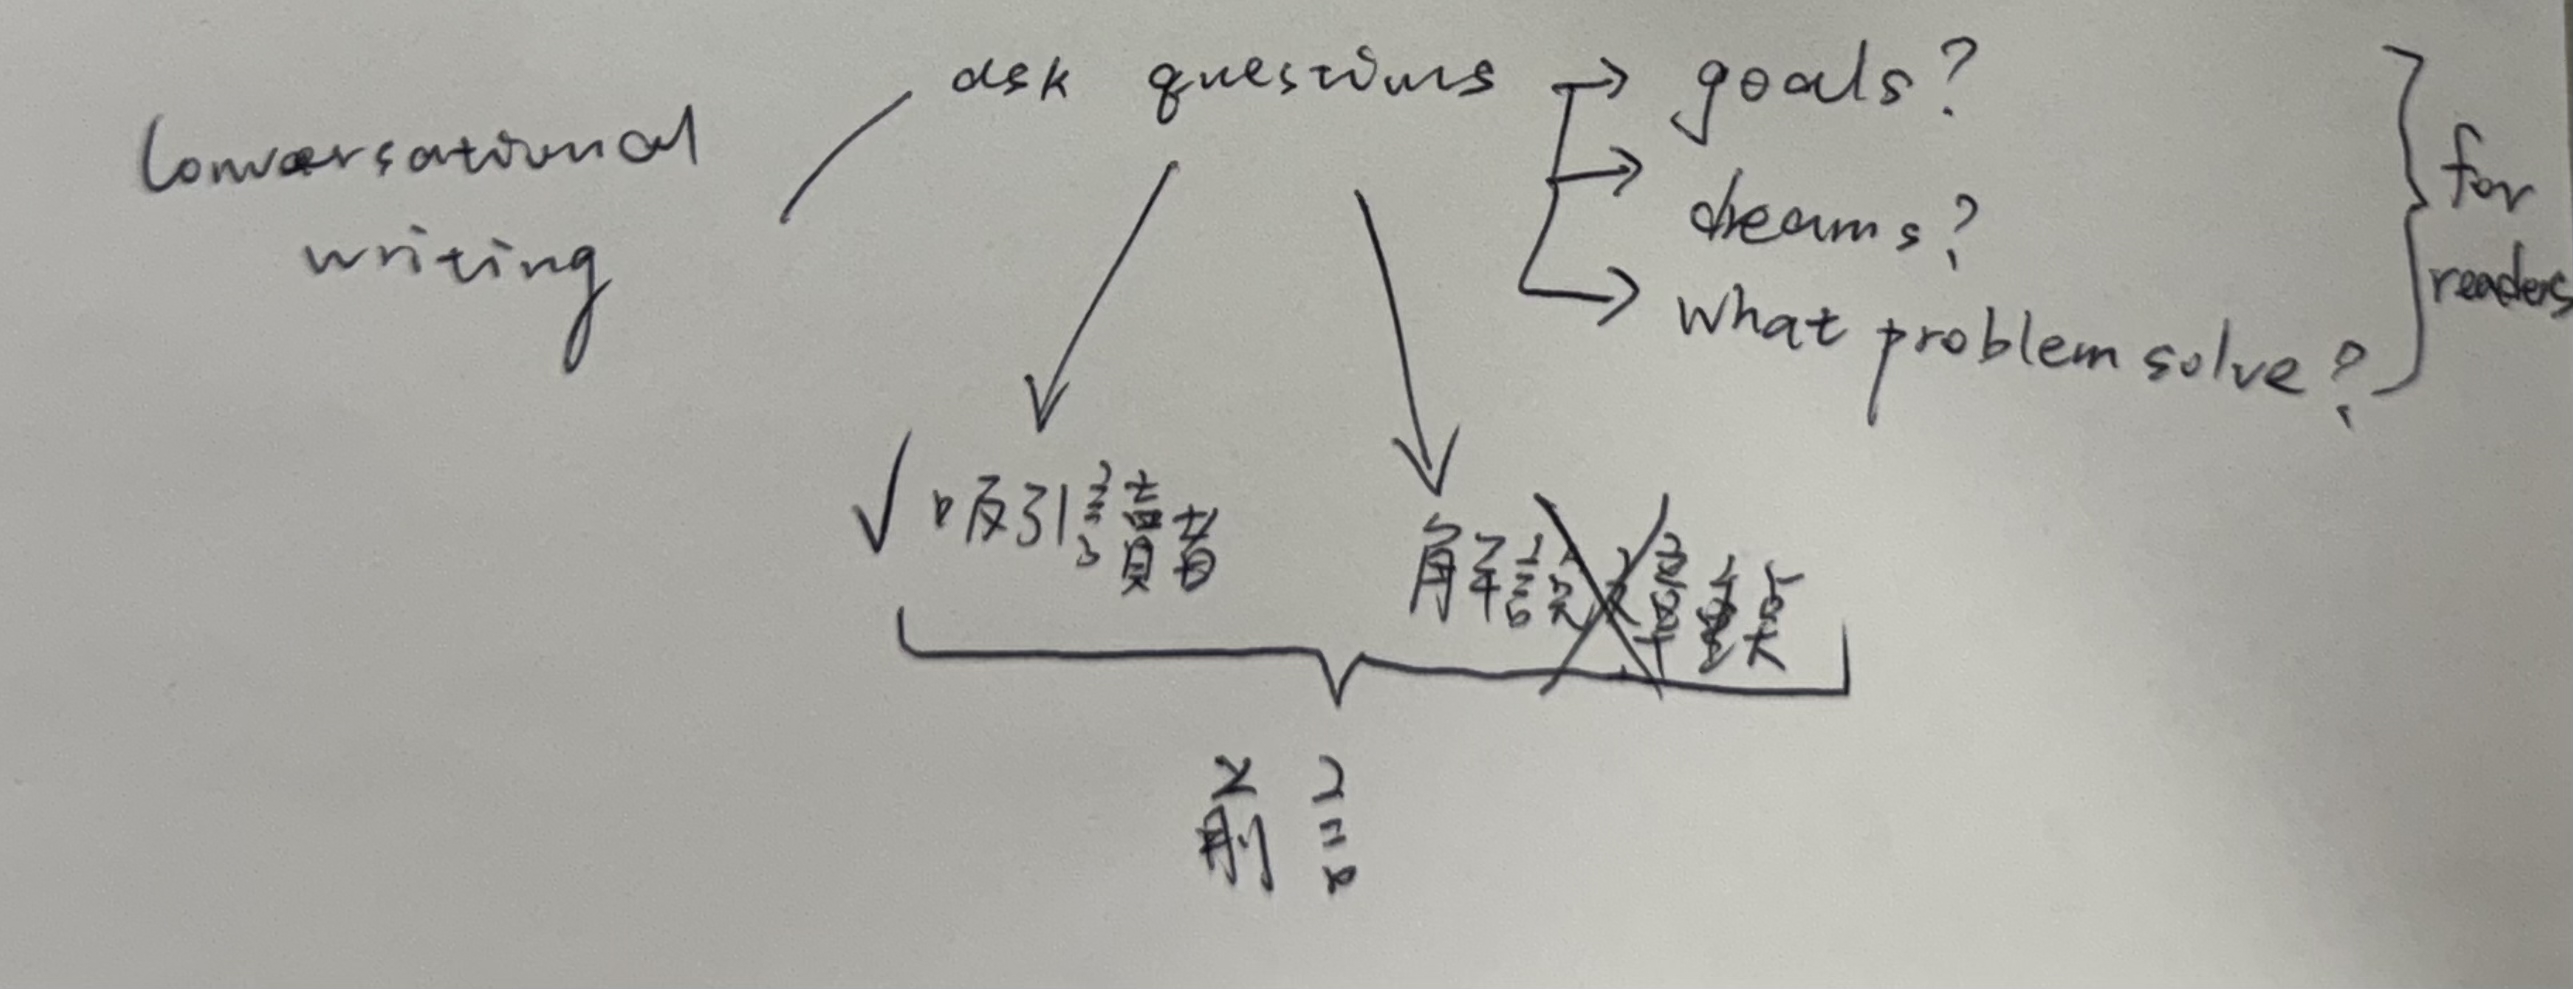 Conversational
writing
ask questions
→ goals?
→ dreams?
→ what problem solve?
for
readers
√ 吸引讀者
解說文章重點
前言